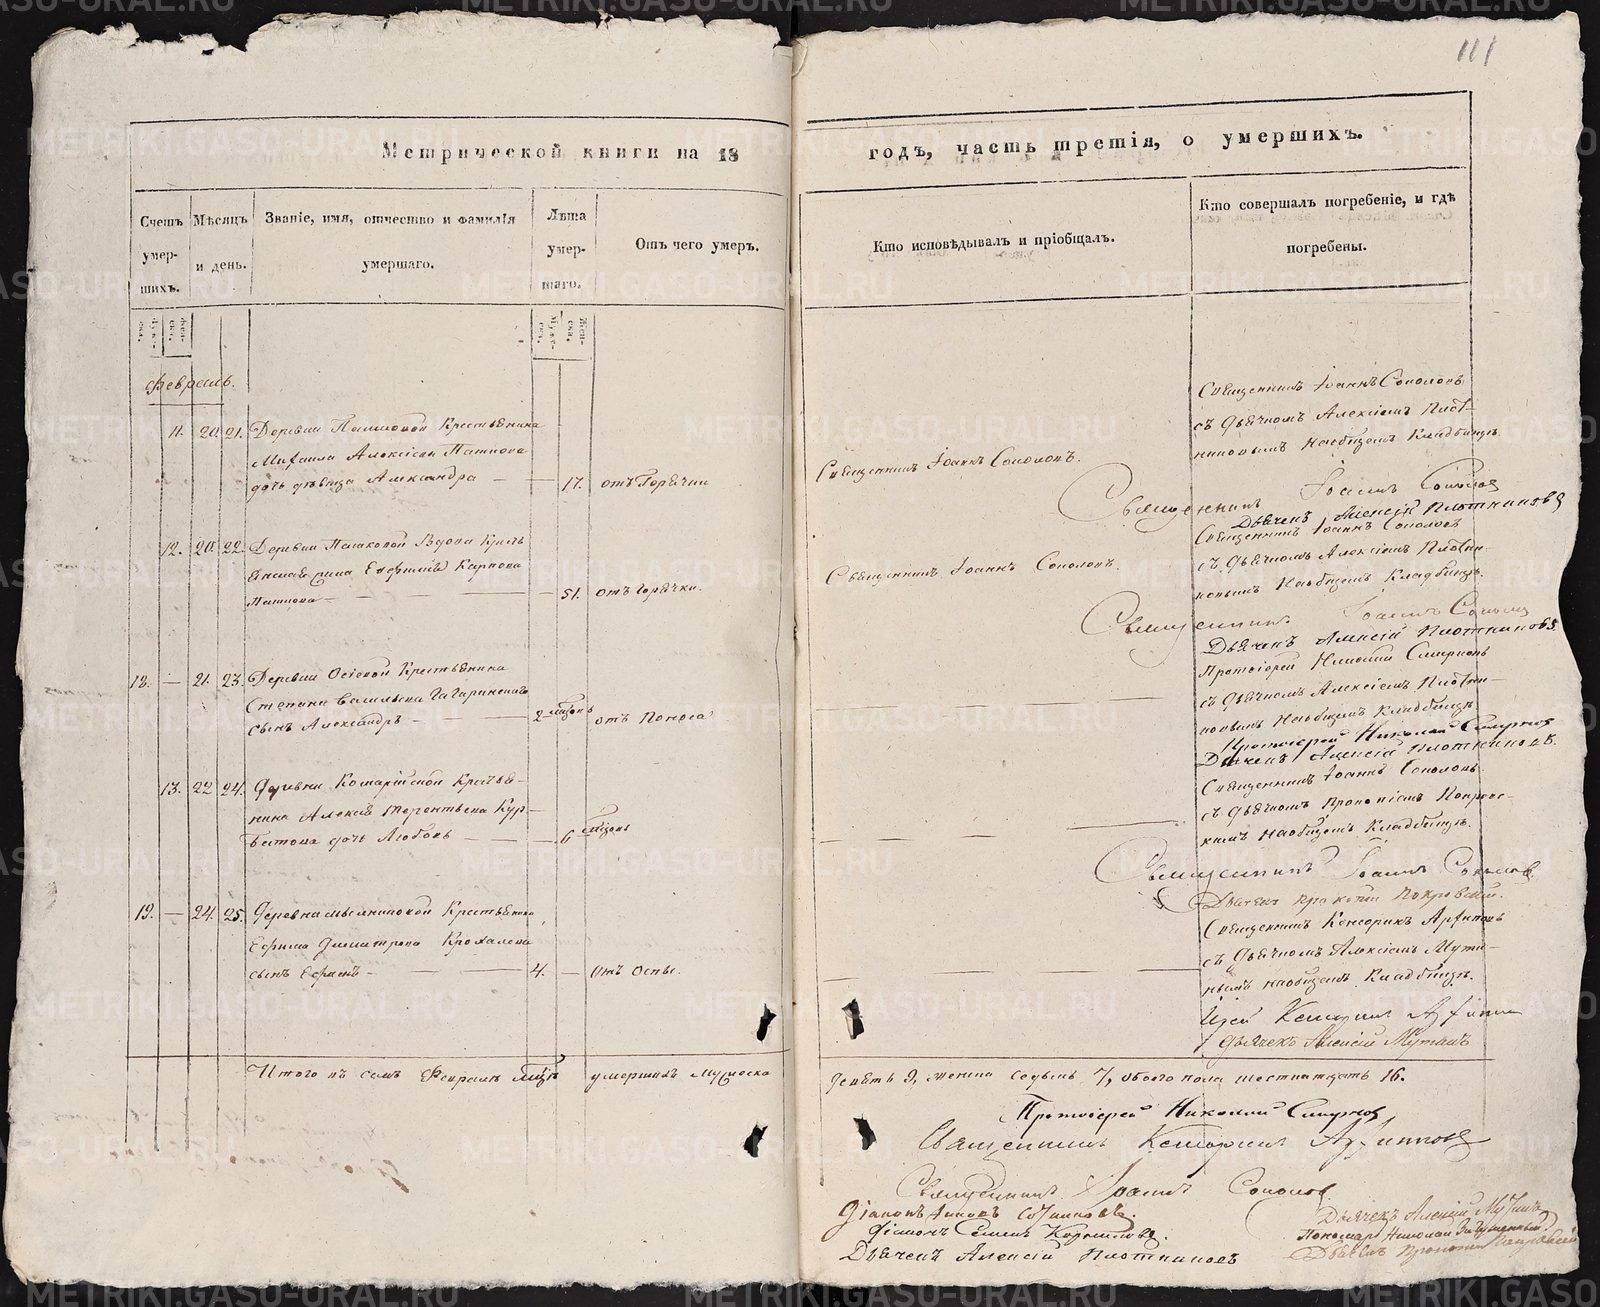 111
Метрической книги на 18
годъ, часть третія, о умершихъ.
Счетъ умер-шихъ.
Мѣсяцъ и день.
Званіе, имя, отчество и фамилія умершаго.
Лѣта умер-шаго.
Отъ чего умеръ.
Кто исповѣдывалъ и пріобщалъ.
Кто совершалъ погребеніе, и гдѣ погребены.
Февраль.
11. 20. 21. Деревни Крестьянина
Михаила Алексіева Патнова
дочь дѣвица Александра — 17. отъ Горячки
Священникъ Іоаннъ Соколовъ.
Священникъ Іоаннъ Соколовъ
съ Дьячкомъ Алексіемъ Плот-
никовымъ на общемъ Кладбищѣ.
Священникъ Іоаннъ Соколов
Дьячекъ Алексій Плотниковъ
12. 20. 22. Деревни Вдова Кресть
Евфимія Карпова
Патнова — 51. отъ Горячки.
Священникъ Іоаннъ Соколовъ.
Священникъ Іоаннъ Соколовъ
съ Дьячкомъ Алексіемъ Плотни-
ковымъ на общемъ Кладбищѣ.
Священникъ Іоаннъ Соколов
Дьячекъ Алексій Плотниковъ.
18. — 21. 23. Деревни Осіевой Крестьянина
Степана Васильева Гагаринскаго
сынъ Александръ — 2 мѣсяц. отъ Поноса
Протоіерей Николай Смирновъ
съ Дьячкомъ Алексіемъ Плотни-
ковымъ на общемъ Кладбищѣ
Протоіерей Николай Смирнов
Дьячекъ Алексій Плотниковъ.
13. 22 24. Деревни Крестья-
нина Алексія Терентьева Кур-
батова дочь Любовь — 6 мѣсяц.
Священникъ Іоаннъ Соколовъ
съ Дьячкомъ Прокопіемъ Покровс-
кимъ на общемъ Кладбищѣ.
Священникъ Іоаннъ Соколов
Дьячекъ Прокопій Покровскій.
19. — 24. 25. Деревни Мельниковой Крестьянина
Ефима Димитрова Крохалева
сынъ Ефимъ — 4. — отъ Оспы.
Священникъ Кенсоринъ Арфиповъ
съ Дьячкомъ Алексіемъ Мути-
нымъ на общемъ Кладбищѣ.
Дьячекъ Алексій Мутинъ
Итого въ семъ Февралѣ мѣсяцѣ умершихъ мужеска
девять 9, женска седмь 7, обоего пола шестнатцать 16.
Протоіерей Николай Смирнов
Священникъ Кенсоринъ
Священникъ Іоаннъ Соколов
Діаконъ Іаковъ
Діаконъ Семенъ Корнилов.
Дьячекъ Алексій Плотниковъ
Дьячекъ Алексій Мутинъ
Пономарь Николай
Дьячекъ Прокопій Покровскій
METRIKI.GASO-URAL.RU